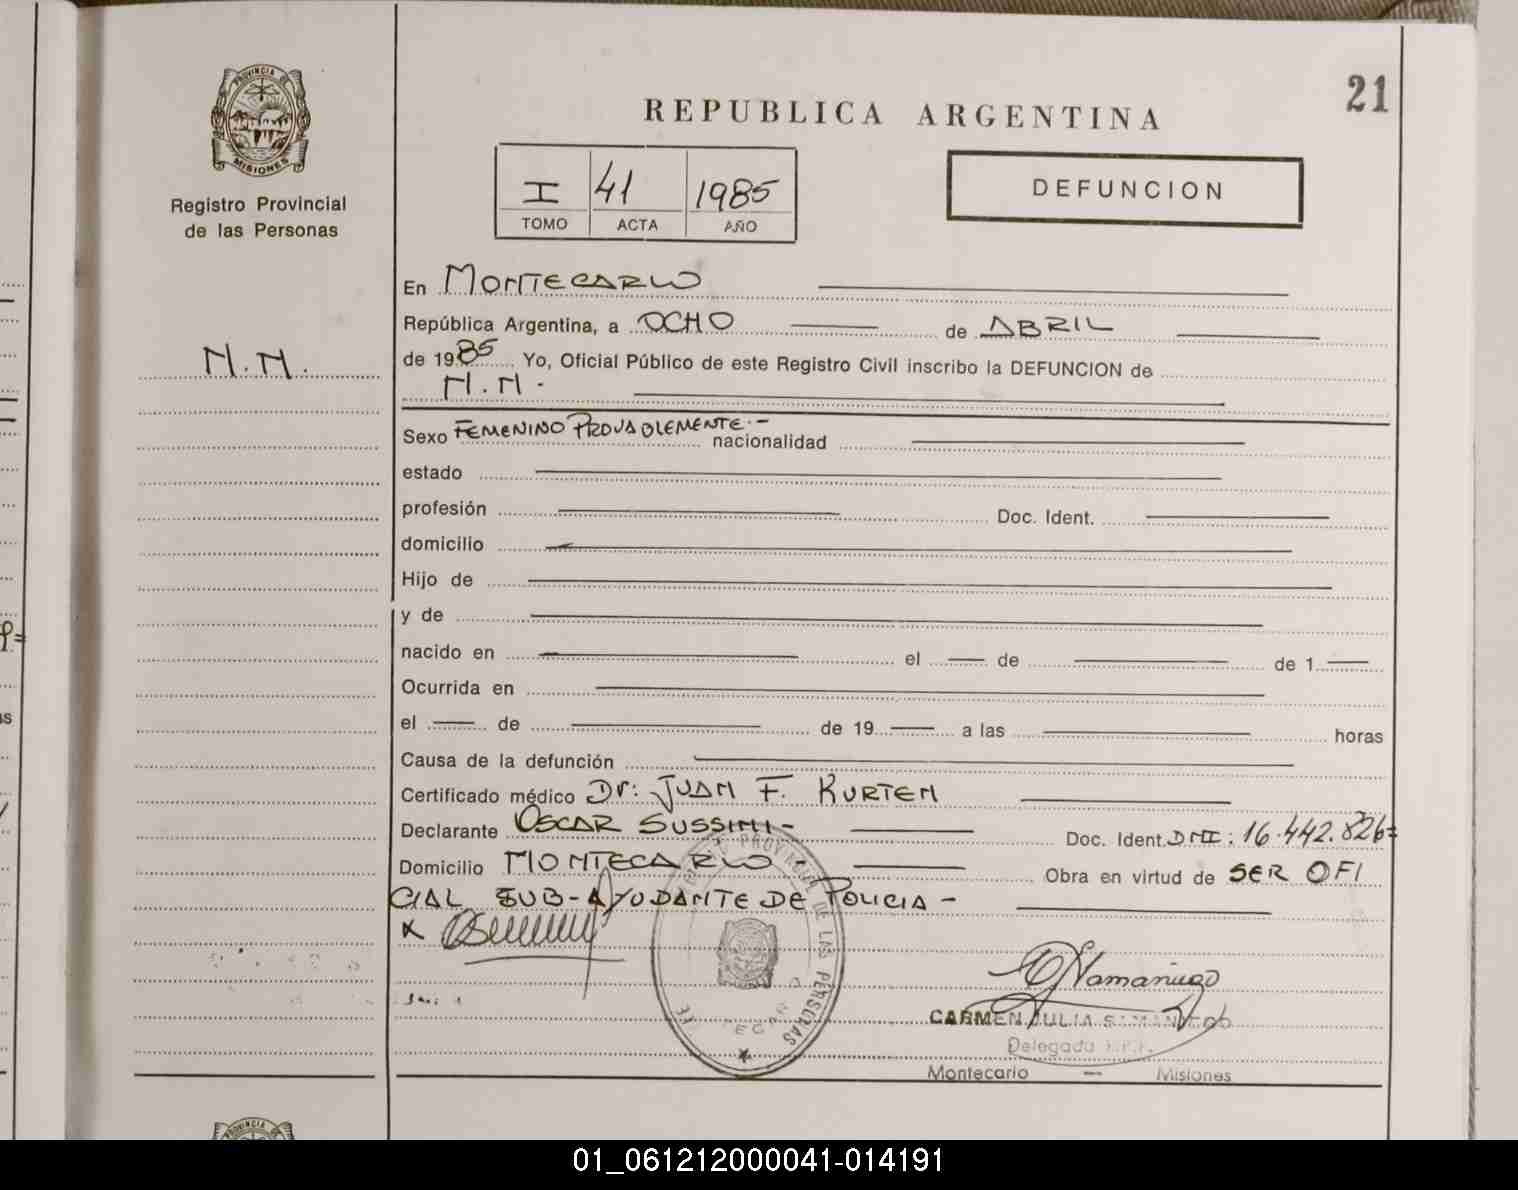 21
PROVINCIA DE
MISIONES
Registro Provincial
de las Personas
REPUBLICA ARGENTINA
I 41 1985
TOMO ACTA AÑO
DEFUNCION
N.N.
En MONTECARLO
República Argentina, a OCHO de ABRIL
de 1985 Yo, Oficial Público de este Registro Civil inscribo la DEFUNCION de
N.N.-
Sexo FEMENINO PROVABLEMENTE.- nacionalidad
estado
profesión Doc. Ident.
domicilio
Hijo de
y de
nacido en el de de 1
Ocurrida en
el de de 19 a las horas
Causa de la defunción
Certificado médico Dr: JUAN F. KURTEN
Declarante OSCAR SUSSINI- Doc. Ident. DNI: 16.442.826=
Domicilio MONTECARLO - Obra en virtud de SER OFI
CIAL SUB-AYUDANTE DE POLICIA -
PROVINCIAL DE LAS PERSONAS
CARMEN JULIA SAMANIEGO
Delegada
Montecarlo - Misiones
01_061212000041-014191